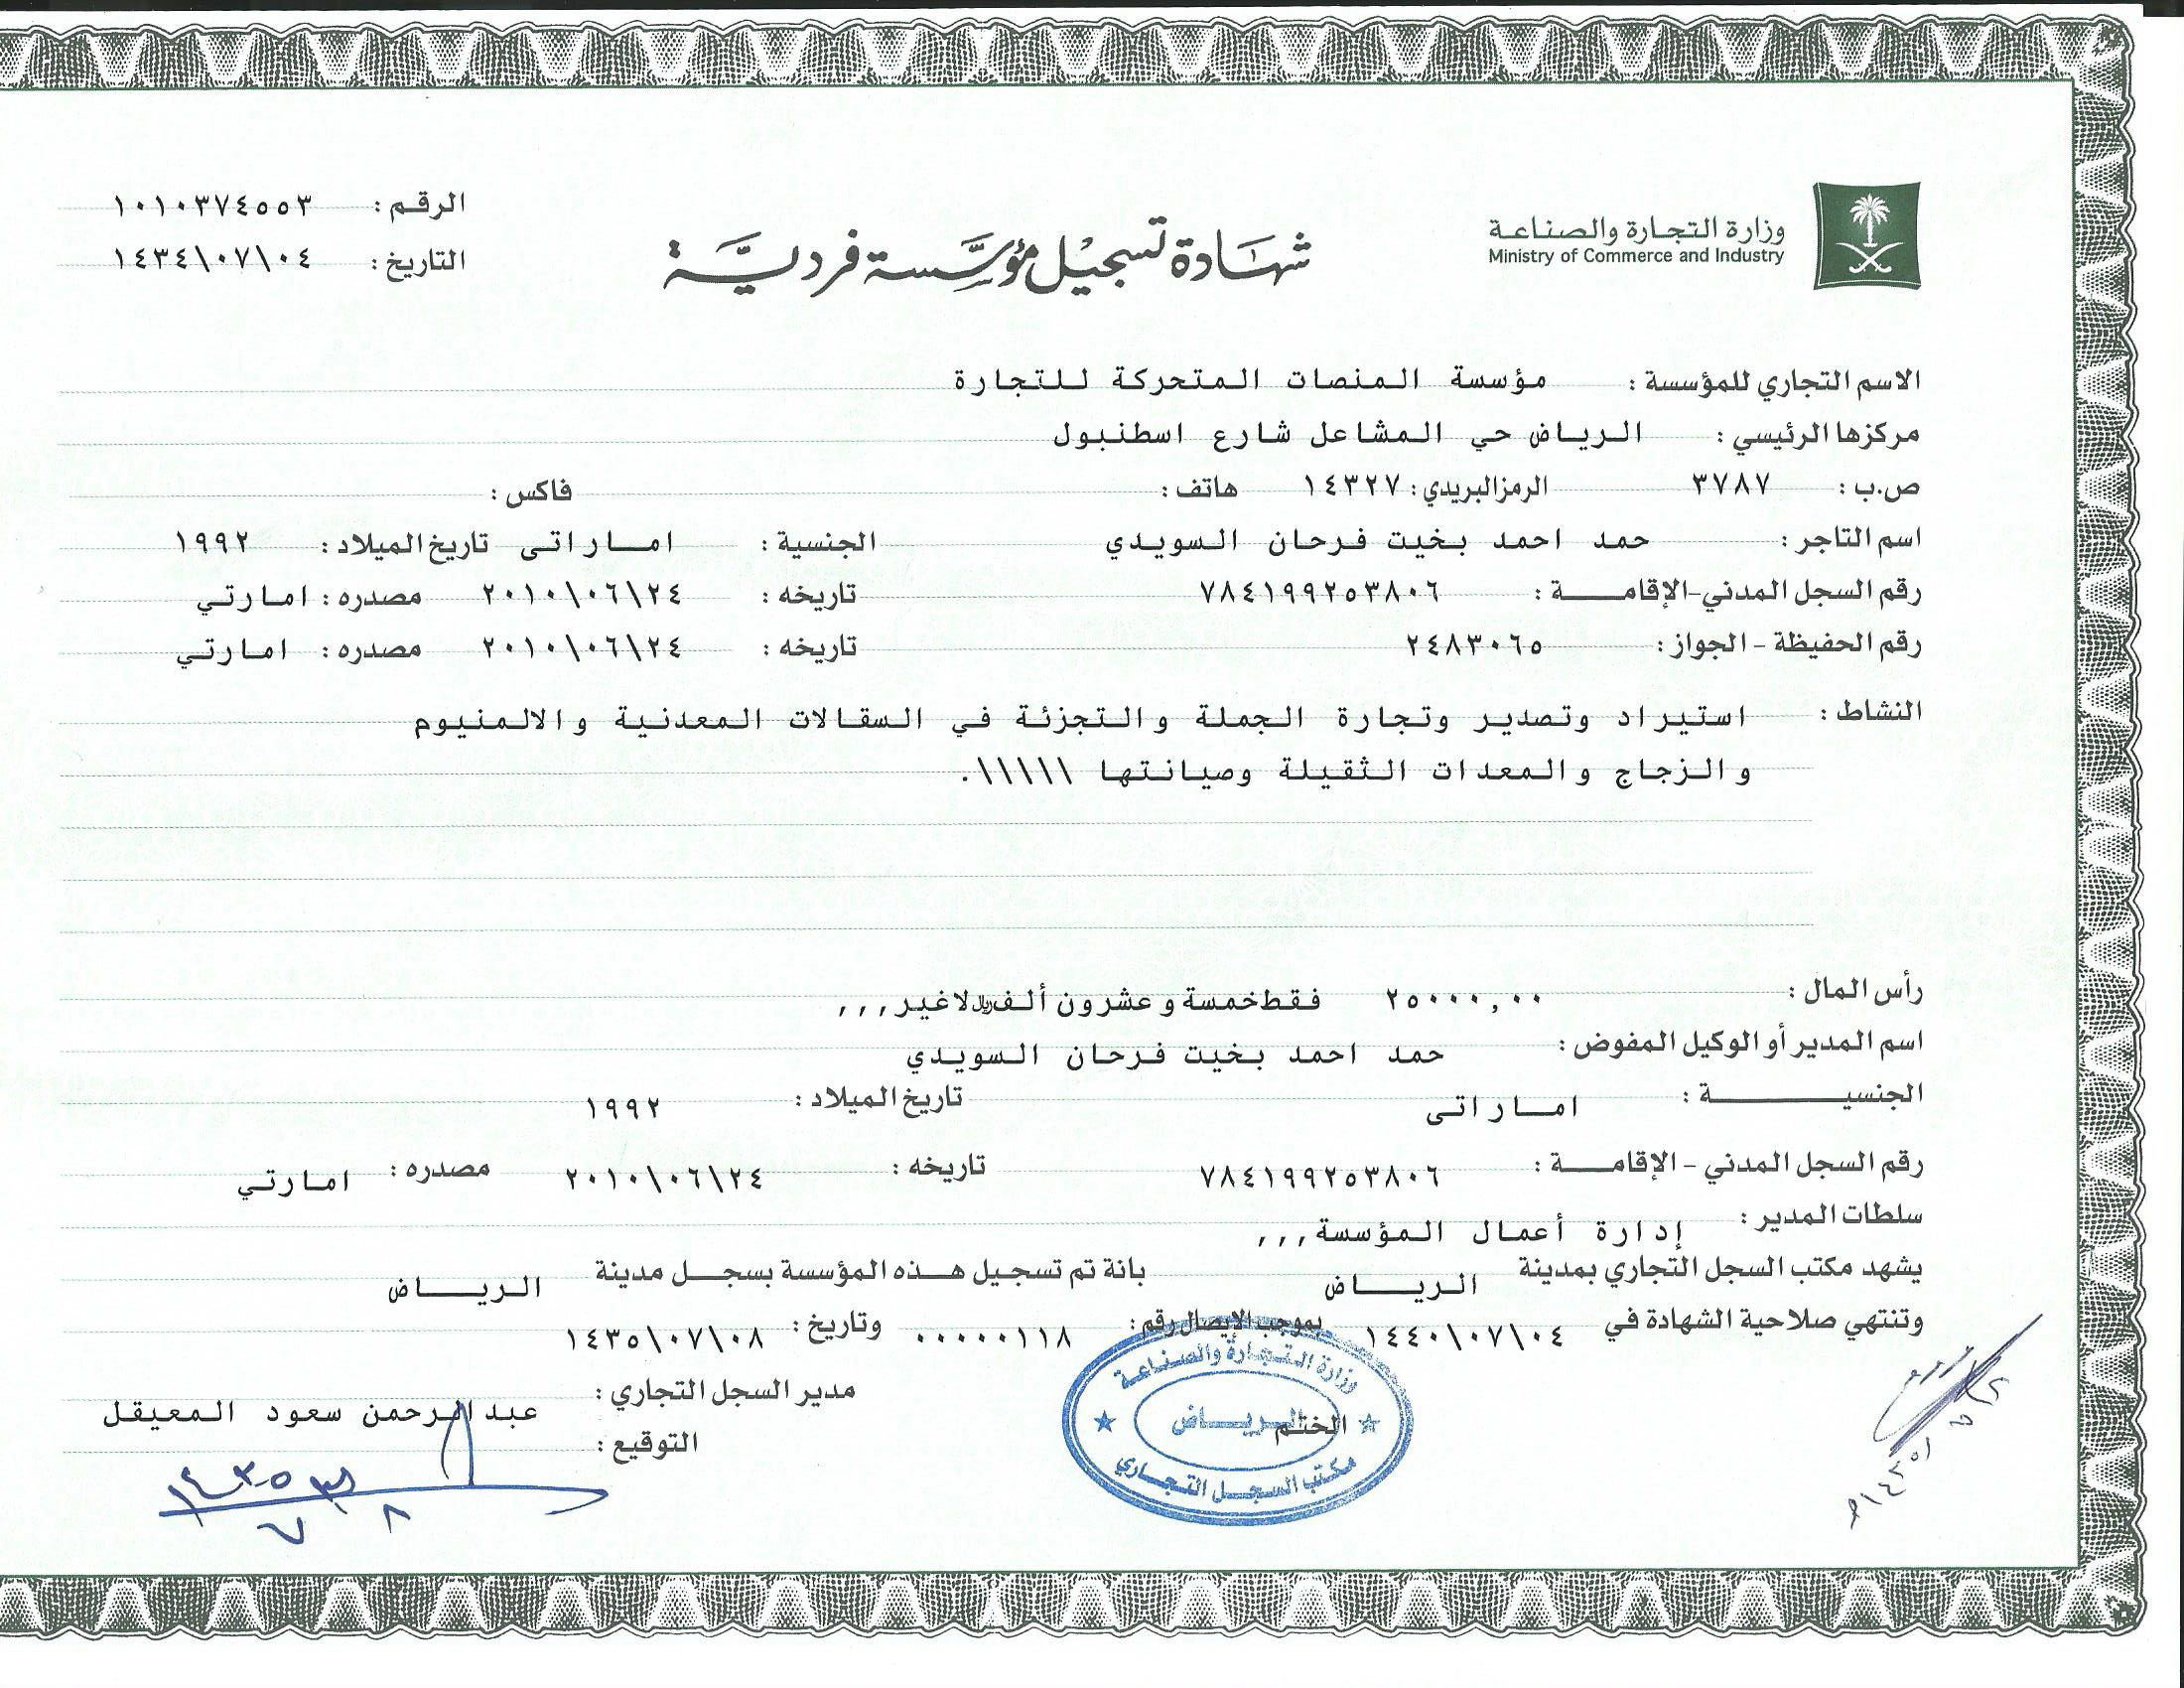 وزارة التجارة والصناعة
Ministry of Commerce and Industry
شهادة تسجيل مؤسسة فردية
الرقم : ١٠١٠٣٧٤٥٥٣
التاريخ : ١٤٣٤\٠٧\٠٤
الاسم التجاري للمؤسسة : مؤسسة المنصات المتحركة للتجارة
مركزها الرئيسي : الرياض حي المشاعل شارع اسطنبول
ص.ب : ٣٧٨٧ الرمز البريدي : ١٤٣٢٧ هاتف : فاكس :
اسم التاجر : حمد احمد بخيت فرحان السويدي الجنسية : اماراتى تاريخ الميلاد : ١٩٩٢
رقم السجل المدني-الإقامة : ٧٨٤١٩٩٢٥٣٨٠٦ تاريخه : ٢٠١٠\٠٦\٢٤ مصدره : امارتي
رقم الحفيظة - الجواز : ٢٤٨٣٠٦٥ تاريخه : ٢٠١٠\٠٦\٢٤ مصدره : امارتي
النشاط : استيراد وتصدير وتجارة الجملة والتجزئة في السقالات المعدنية والالمنيوم
والزجاج والمعدات الثقيلة وصيانتها \\\\\.
رأس المال : ٢٥٠٠٠,٠٠ فقط خمسة وعشرون ألف ريال لاغير,,,
اسم المدير أو الوكيل المفوض : حمد احمد بخيت فرحان السويدي
الجنسية : اماراتى تاريخ الميلاد : ١٩٩٢
رقم السجل المدني - الإقامة : ٧٨٤١٩٩٢٥٣٨٠٦ تاريخه : ٢٠١٠\٠٦\٢٤ مصدره : امارتي
سلطات المدير : إدارة أعمال المؤسسة,,,
يشهد مكتب السجل التجاري بمدينة الرياض بانة تم تسجيل هذه المؤسسة بسجل مدينة الرياض
وتنتهي صلاحية الشهادة في ١٤٤٠\٠٧\٠٤ بموجب الإيصال رقم : ٠٠٠٠٠١١٨ وتاريخ : ١٤٣٥\٠٧\٠٨
وزارة التجارة والصناعة
الرياض
مكتب السجل التجاري
الختم
مدير السجل التجاري : عبدالرحمن سعود المعيقل
التوقيع :